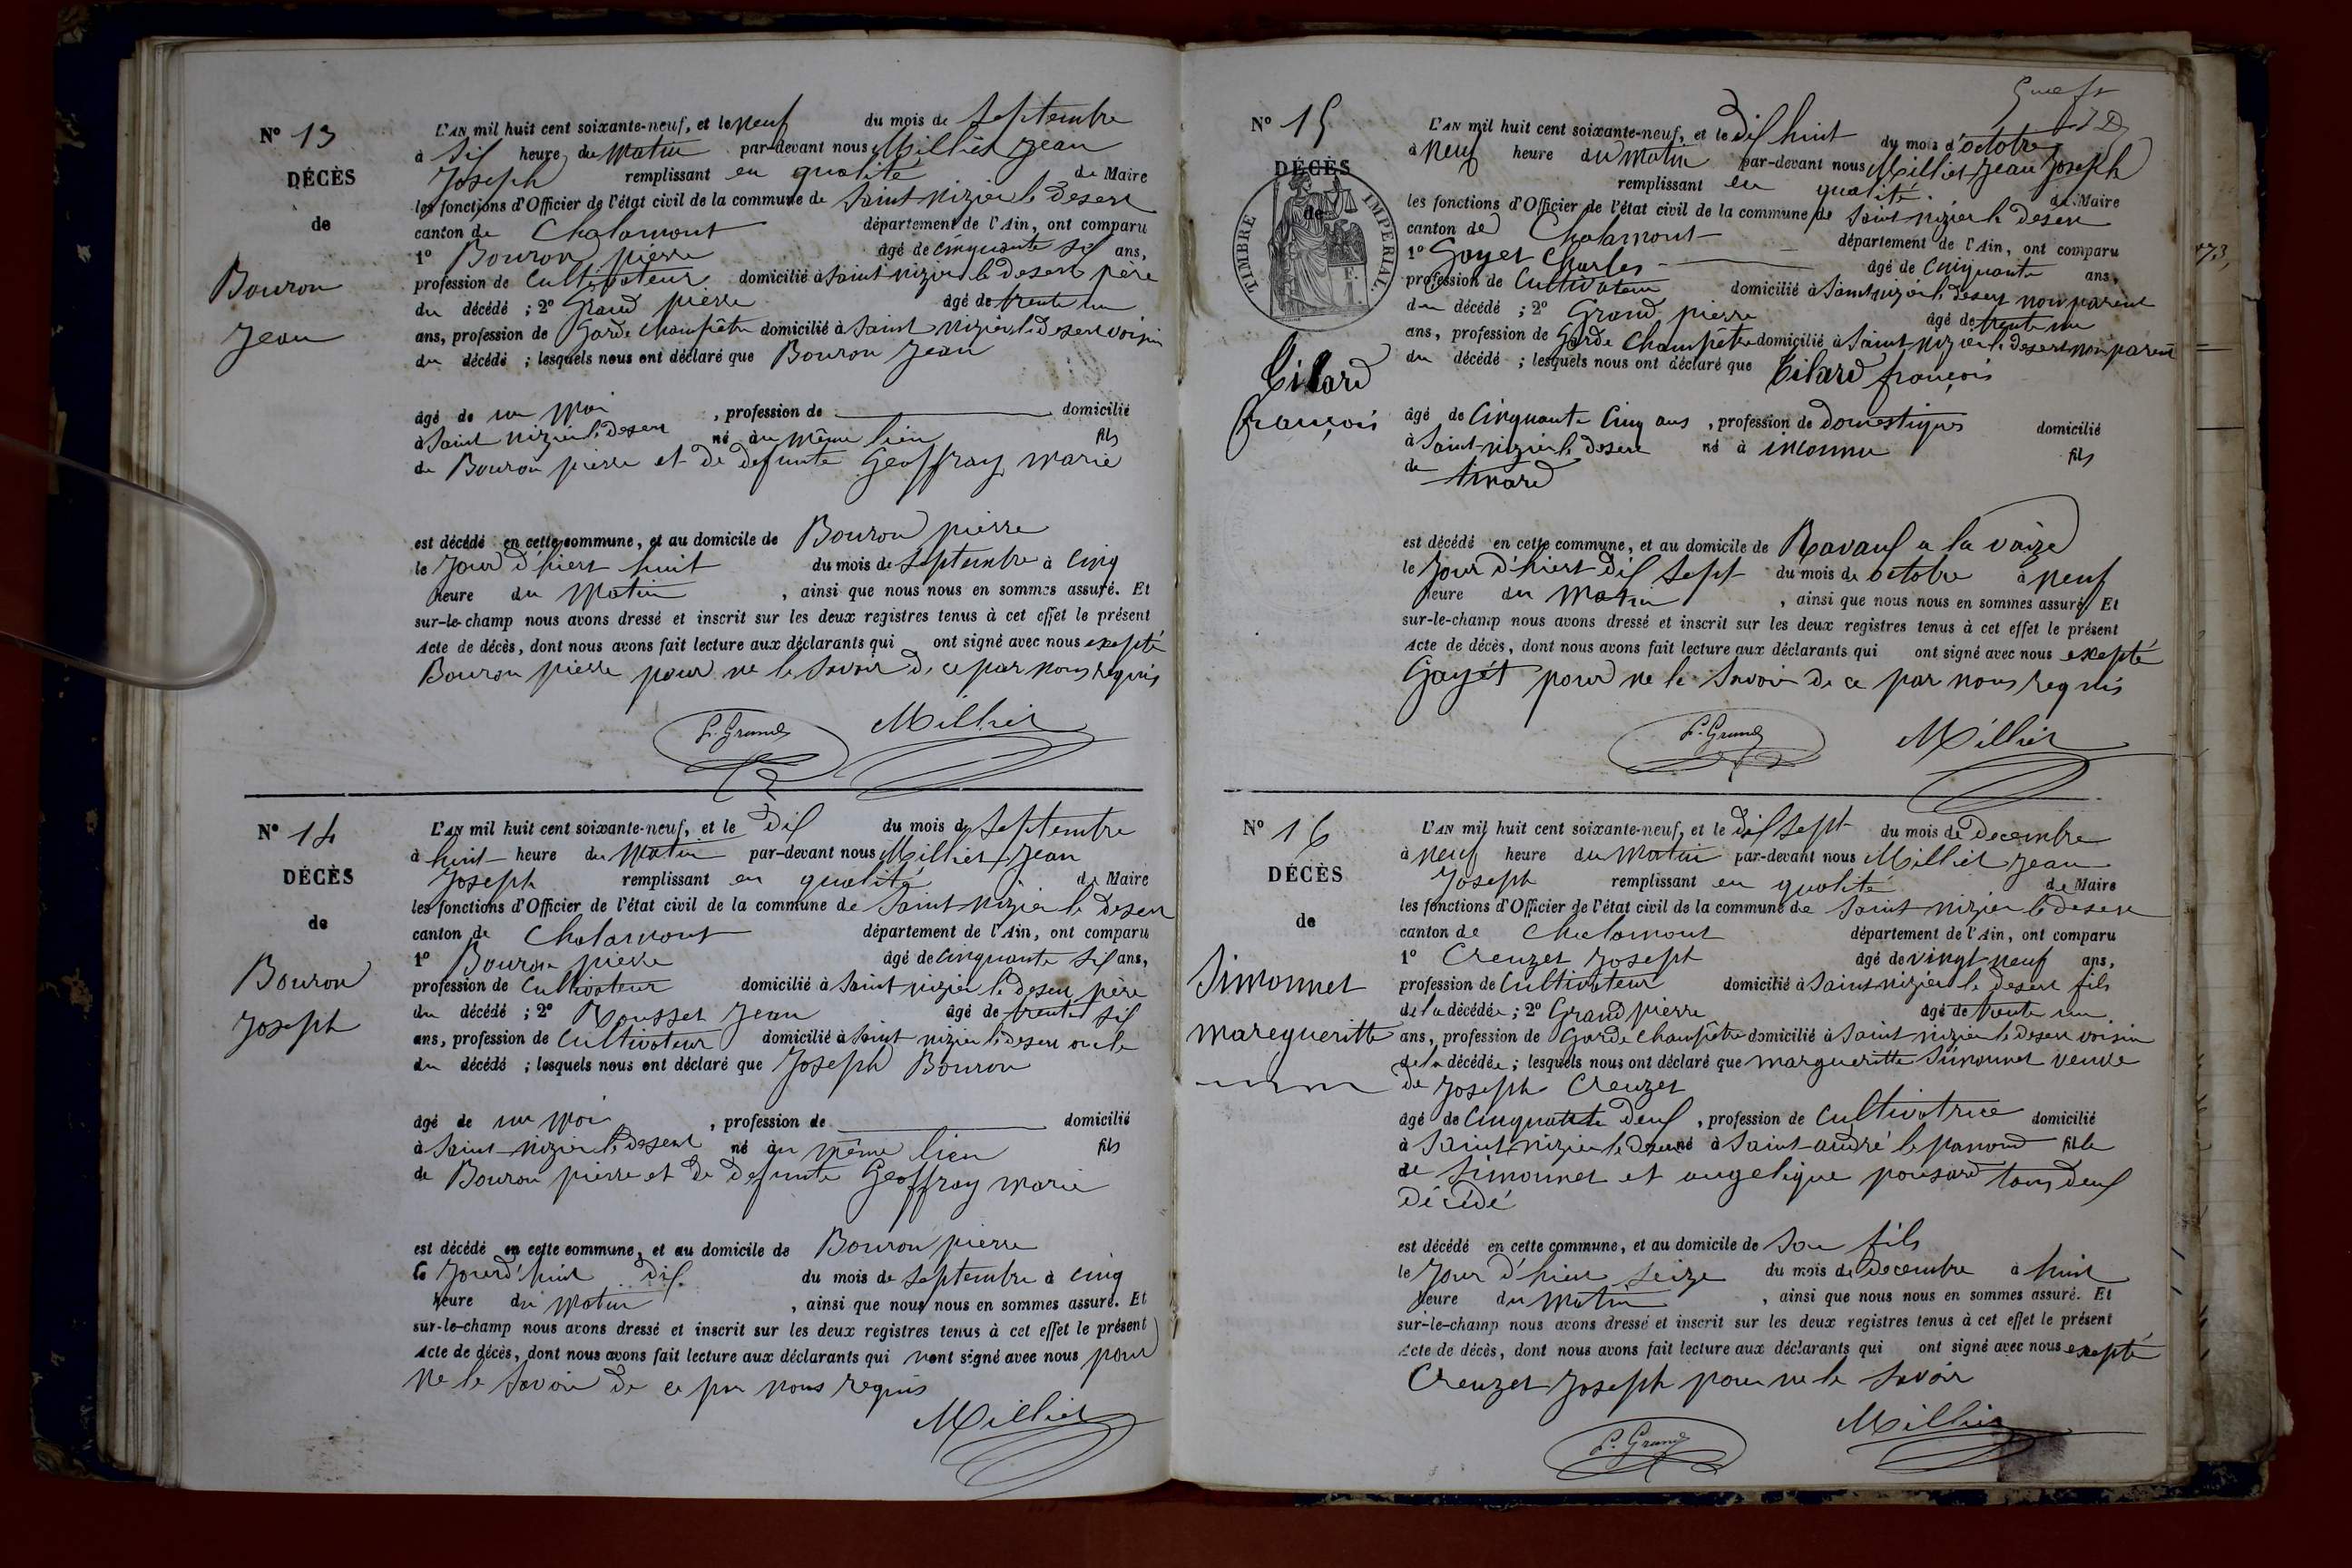 N° 13
DÉCÈS
de
Bouron
Jean
L'AN mil huit cent soixante-neuf, et le neuf du mois de Septembre
à Sif heure du Matin par-devant nous Milliet Jean
Joseph remplissant en qualité de Maire
les fonctions d'Officier de l'état civil de la commune de Saint nizier le Desert
canton de Chalamont département de l'Ain, ont comparu
1° Bouron pierre âgé de cinquante Sif ans,
profession de Cultivateur domicilié à Saint nizier le desert père
du décédé ; 2° Grand pierre âgé de trente un
ans, profession de Garde Champêtre domicilié à Saint nizier le desert voisin
du décédé ; lesquels nous ont déclaré que Bouron Jean
âgé de un Moi , profession de domicilié
à Saint nizier le Desert né au même lieu fils
de Bouron pierre et de defunte Geoffray marie
est décédé en cette commune, et au domicile de Bouron pierre
le Jour d'hiert huit du mois de Septembre à Cinq
heure du Matin , ainsi que nous nous en sommes assuré. Et
sur-le-champ nous avons dressé et inscrit sur les deux registres tenus à cet effet le présent
Acte de décès, dont nous avons fait lecture aux déclarants qui ont signé avec nous exepté
Bouron pierre pour ne le Savoir de ce par nous requis
P. Grand Milliet
N° 14
DÉCÈS
de
Bouron
Joseph
L'AN mil huit cent soixante-neuf, et le Dif du mois de Septembre
à huit heure du Matin par-devant nous Milliet Jean
Joseph remplissant en qualité de Maire
les fonctions d'Officier de l'état civil de la commune de Saint Nizier le Desert
canton de Chalamont département de l'Ain, ont comparu
1° Bouron pierre âgé de cinquante Sif ans,
profession de Cultivateur domicilié à Saint nizier le Desert père
du décédé ; 2° Rousset Jean âgé de trente Sif
ans, profession de Cultivateur domicilié à Saint nizier le Desert oncle
du décédé ; lesquels nous ont déclaré que Joseph Bouron
âgé de un Moi , profession de domicilié
à Saint nizier le Desert né au même lieu fils
de Bouron pierre et de defunte Geoffray marie
est décédé en cette commune, et au domicile de Bouron pierre
le Jourd'huit Dif du mois de Septembre à cinq
heure du Matin , ainsi que nous nous en sommes assuré. Et
sur-le-champ nous avons dressé et inscrit sur les deux registres tenus à cet effet le présent
Acte de décès, dont nous avons fait lecture aux déclarants qui nont signé avec nous pour
ne le Savoir de ce par nous requis
Milliet
N° 15
DÉCÈS
de
TIMBRE IMPÉRIAL
Tilard
françois
L'AN mil huit cent soixante-neuf, et le Dif huit du mois d'octobre
à Neuf heure du Matin par-devant nous Milliet Jean Joseph
remplissant en qualité de Maire
les fonctions d'Officier de l'état civil de la commune de Saint nizier le Desert
canton de Chalamont département de l'Ain, ont comparu
1° Goyet Charles âgé de Cinquante ans,
profession de Cultivateur domicilié à Saint nizier le desert non parent
du décédé ; 2° Grand pierre âgé de trente un
ans, profession de Garde Champêtre domicilié à Saint nizier le desert non parent
du décédé ; lesquels nous ont déclaré que Tilard françois
âgé de Cinquante Cinq ans , profession de domestique domicilié
à Saint nizier le Desert né à inconnu fils
de
est décédé en cette commune, et au domicile de
le Jour d'hiert Dif Sept du mois de octobre à Neuf
heure du Matin , ainsi que nous nous en sommes assuré. Et
sur-le-champ nous avons dressé et inscrit sur les deux registres tenus à cet effet le présent
Acte de décès, dont nous avons fait lecture aux déclarants qui ont signé avec nous exepté
Gayét pour ne le Savoir de ce par nous requis
P. Grand Milliet
N° 16
DÉCÈS
de
Simonnet
Maregueritte
L'AN mil huit cent soixante-neuf, et le Dif Sept du mois de Decembre
à Neuf heure du Matin par-devant nous Milliet Jean
Joseph remplissant en qualité de Maire
les fonctions d'Officier de l'état civil de la commune de Saint nizier le desert
canton de Chalamont département de l'Ain, ont comparu
1° Creuzet Joseph âgé de vingt neuf ans,
profession de Cultivateur domicilié à Saint nizier le desert fils
de la décédée ; 2° Grand pierre âgé de trente un
ans, profession de Garde Champêtre domicilié à Saint nizier le desert voisin
de la décédée ; lesquels nous ont déclaré que margueritte Simonnet veuve
de Joseph Creuzet
âgé de Cinquante Deuf , profession de Cultivatrice domicilié
à Saint nizier le Desert né à Saint andré le panoud fille
de Simonnet et angelique pousard tous deuf
décédé
est décédé en cette commune, et au domicile de Son fils
le Jour d'hier Seize du mois de Decembre à huit
heure du Matin , ainsi que nous nous en sommes assuré. Et
sur-le-champ nous avons dressé et inscrit sur les deux registres tenus à cet effet le présent
Acte de décès, dont nous avons fait lecture aux déclarants qui ont signé avec nous exepté
Creuzet Joseph pour ne le Savoir
P. Grand Milliet